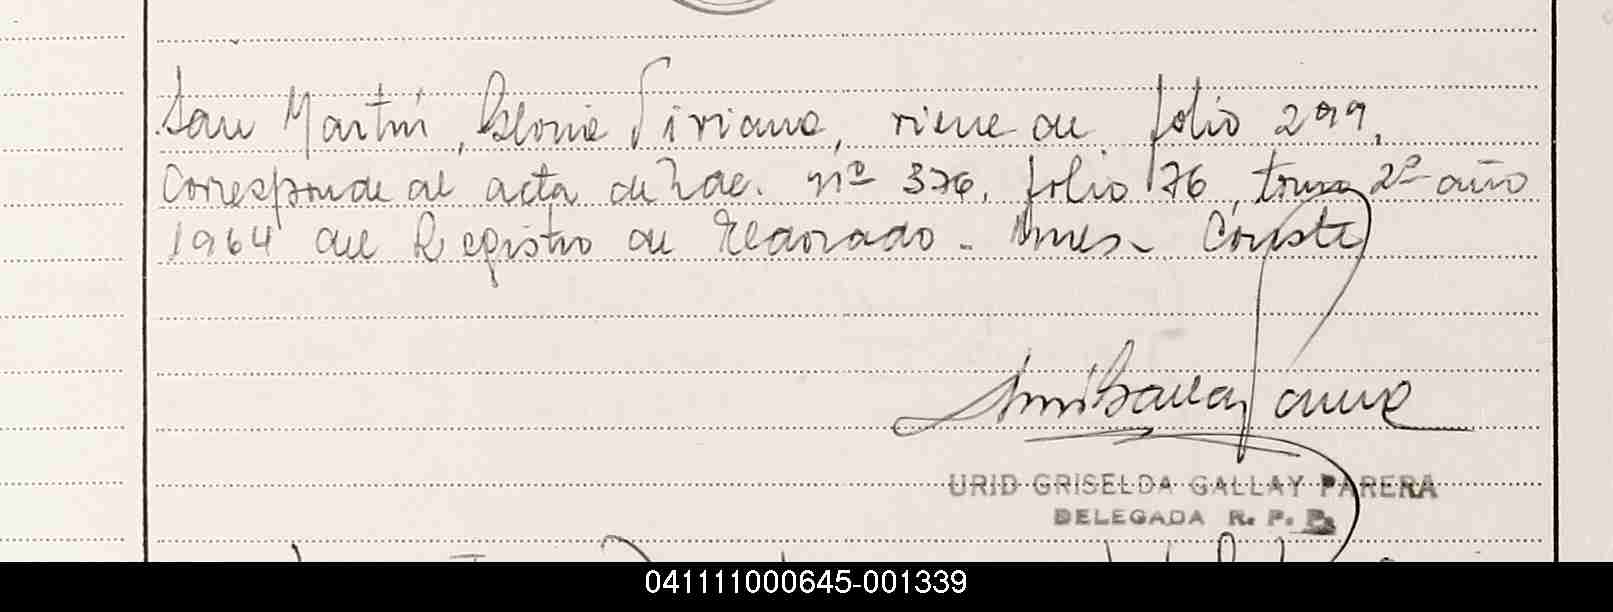 San Martín, Gloria Viviana, viene de folio 299.
Corresponde al acta de Nac. nº 376, folio 76, tomo 2º año
1964 del Registro de Eldorado - Mnes - Conste
URID GRISELDA GALLAY PARERA
DELEGADA R. P. P.
041111000645-001339